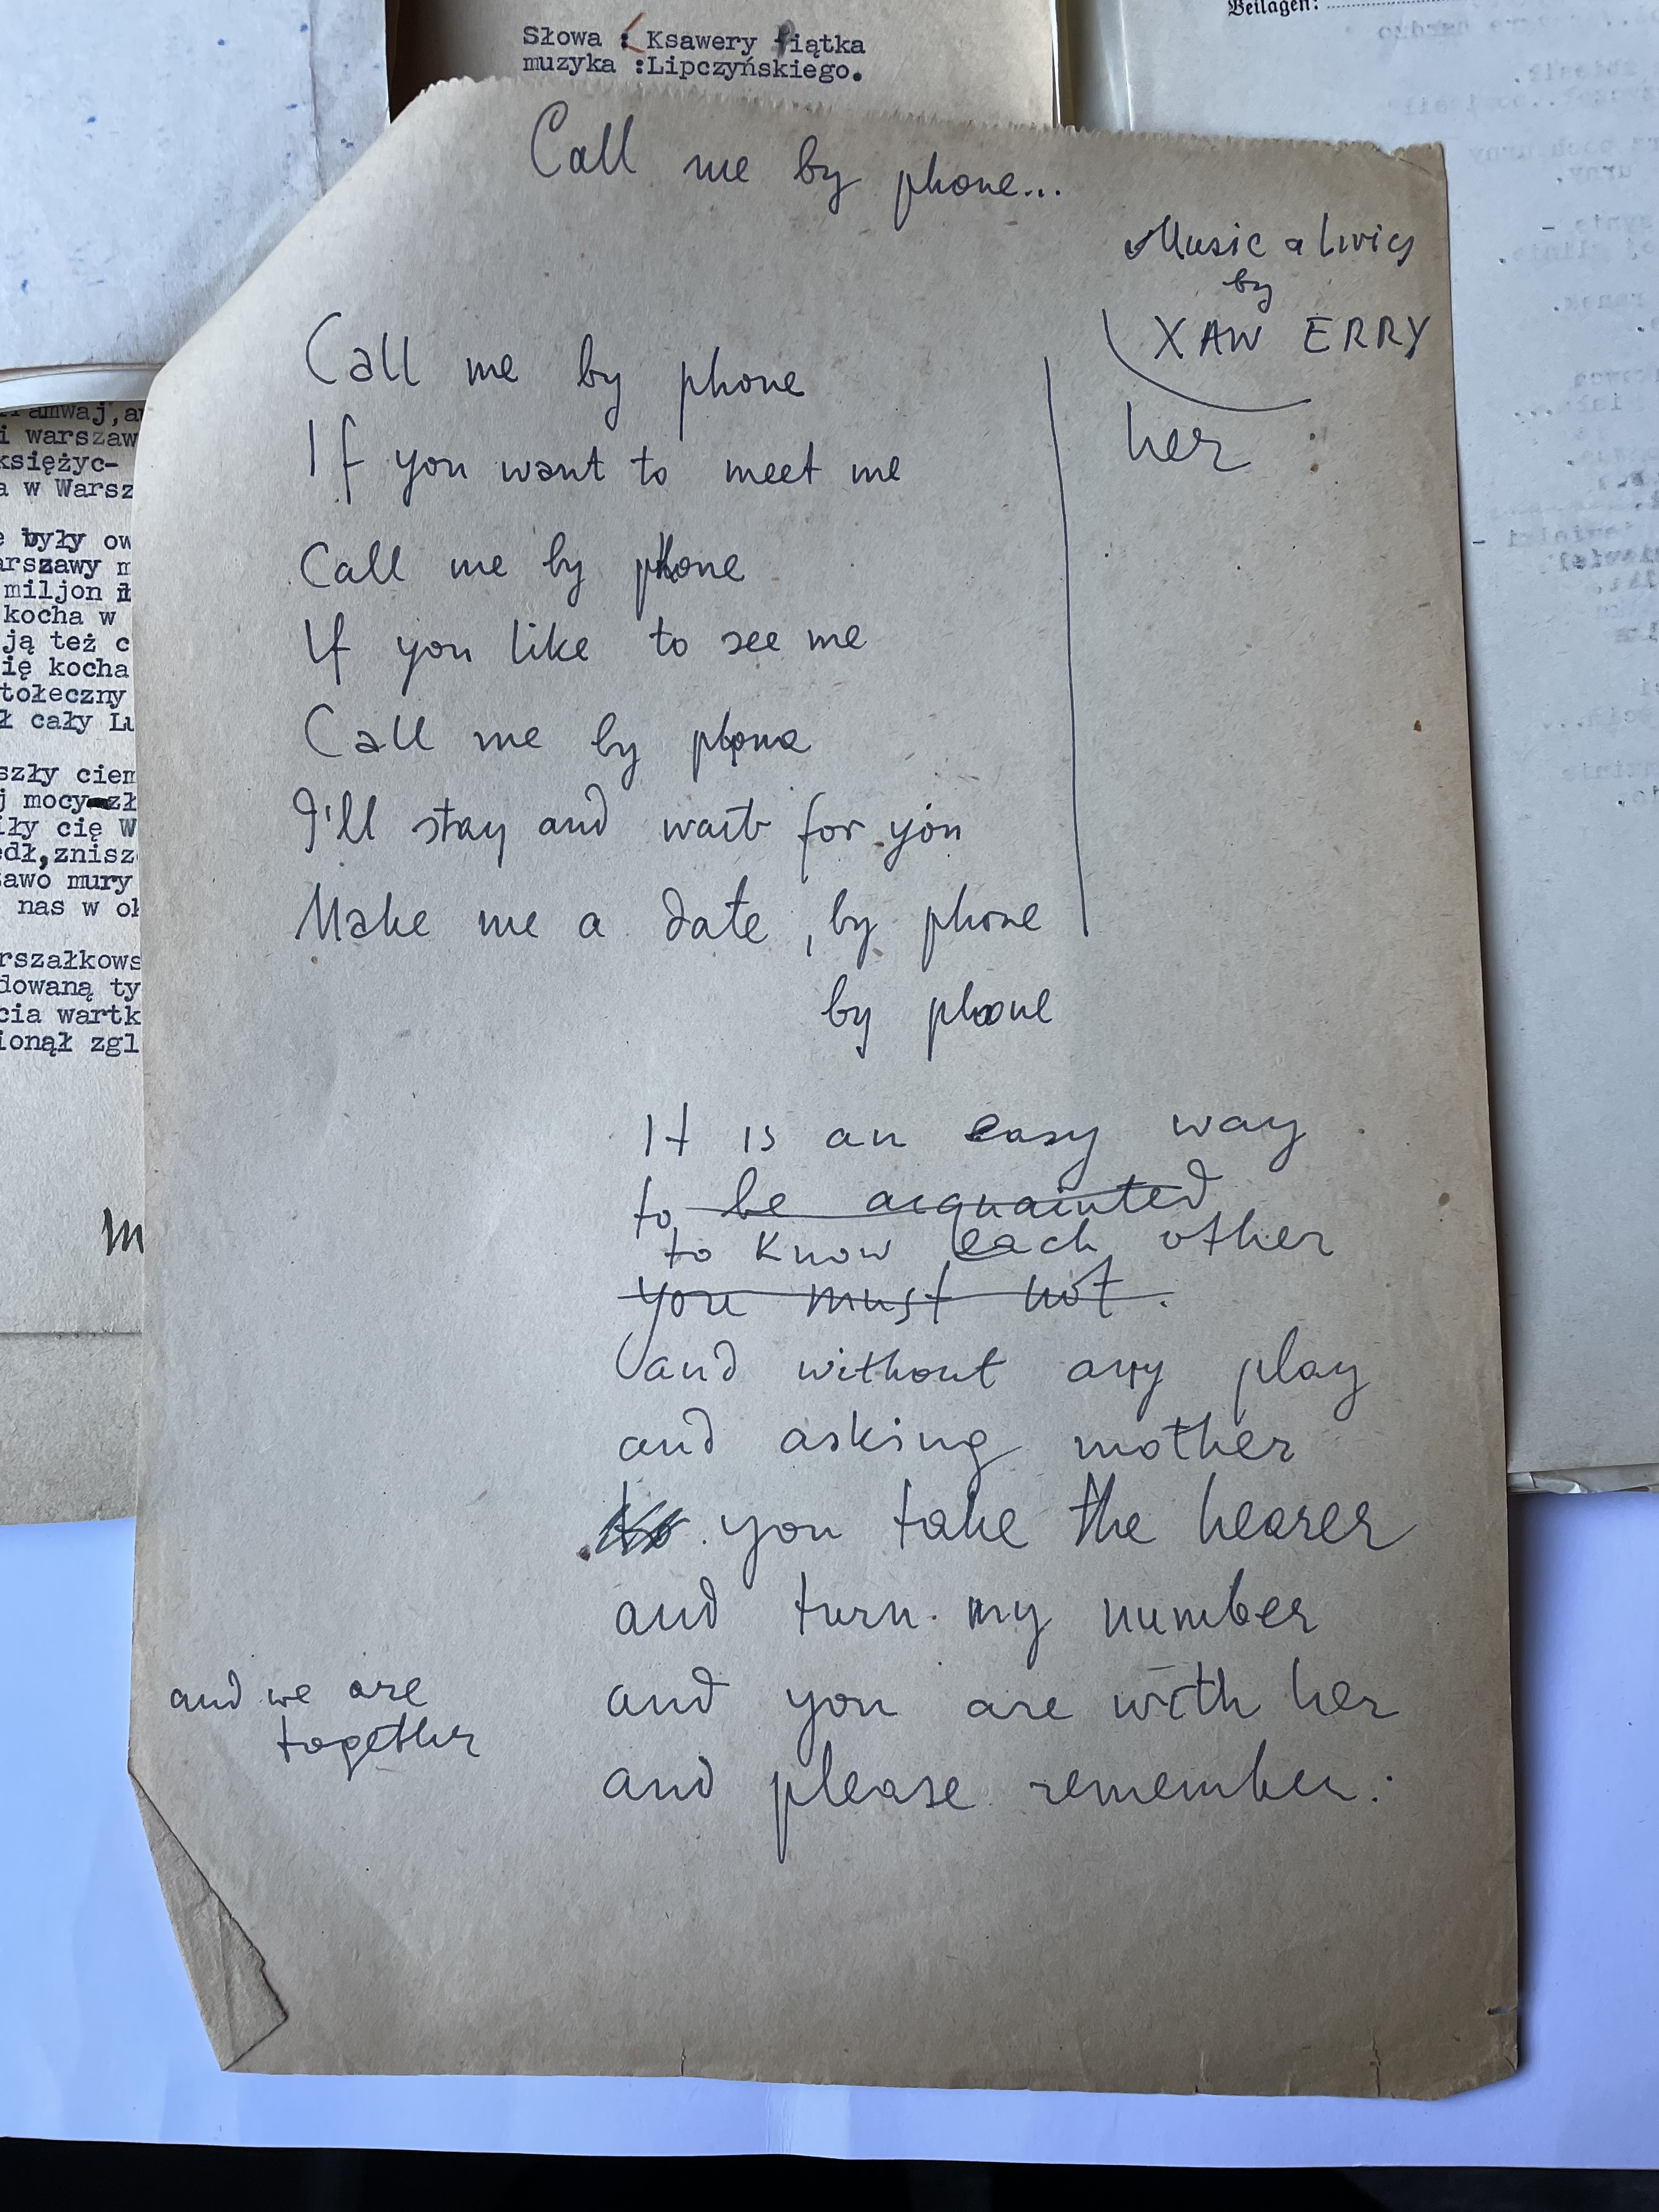 Beilagen:
Słowa : Ksawery Piątka
muzyka :Lipczyńskiego.
Call me by phone...
Music a Lirics
by
XAW ERRY
her :
Call me by phone
If you want to meet me
Call me by phone
If you like to see me
Call me by phone
I'll stay and wait for you
Make me a date, by phone
by phone
It is an easy way
to be acquainted
to know each other
you must not.
and without any play
and asking mother
you take the hearer
and turn my number
and we are
together
and you are with her
and please remember:
amwaj,a
i warszaw
księżyc-
a w Warsz
e były ow
arszawy m
miljon
kocha w
ją też c
ię kocha
tołeczny
ł cały Lu
szły ciem
j mocy zł
iły cię W
edł,znisz
awo mury
nas w ok
rszałkows
dowaną ty
cia wartk
ionął zgl